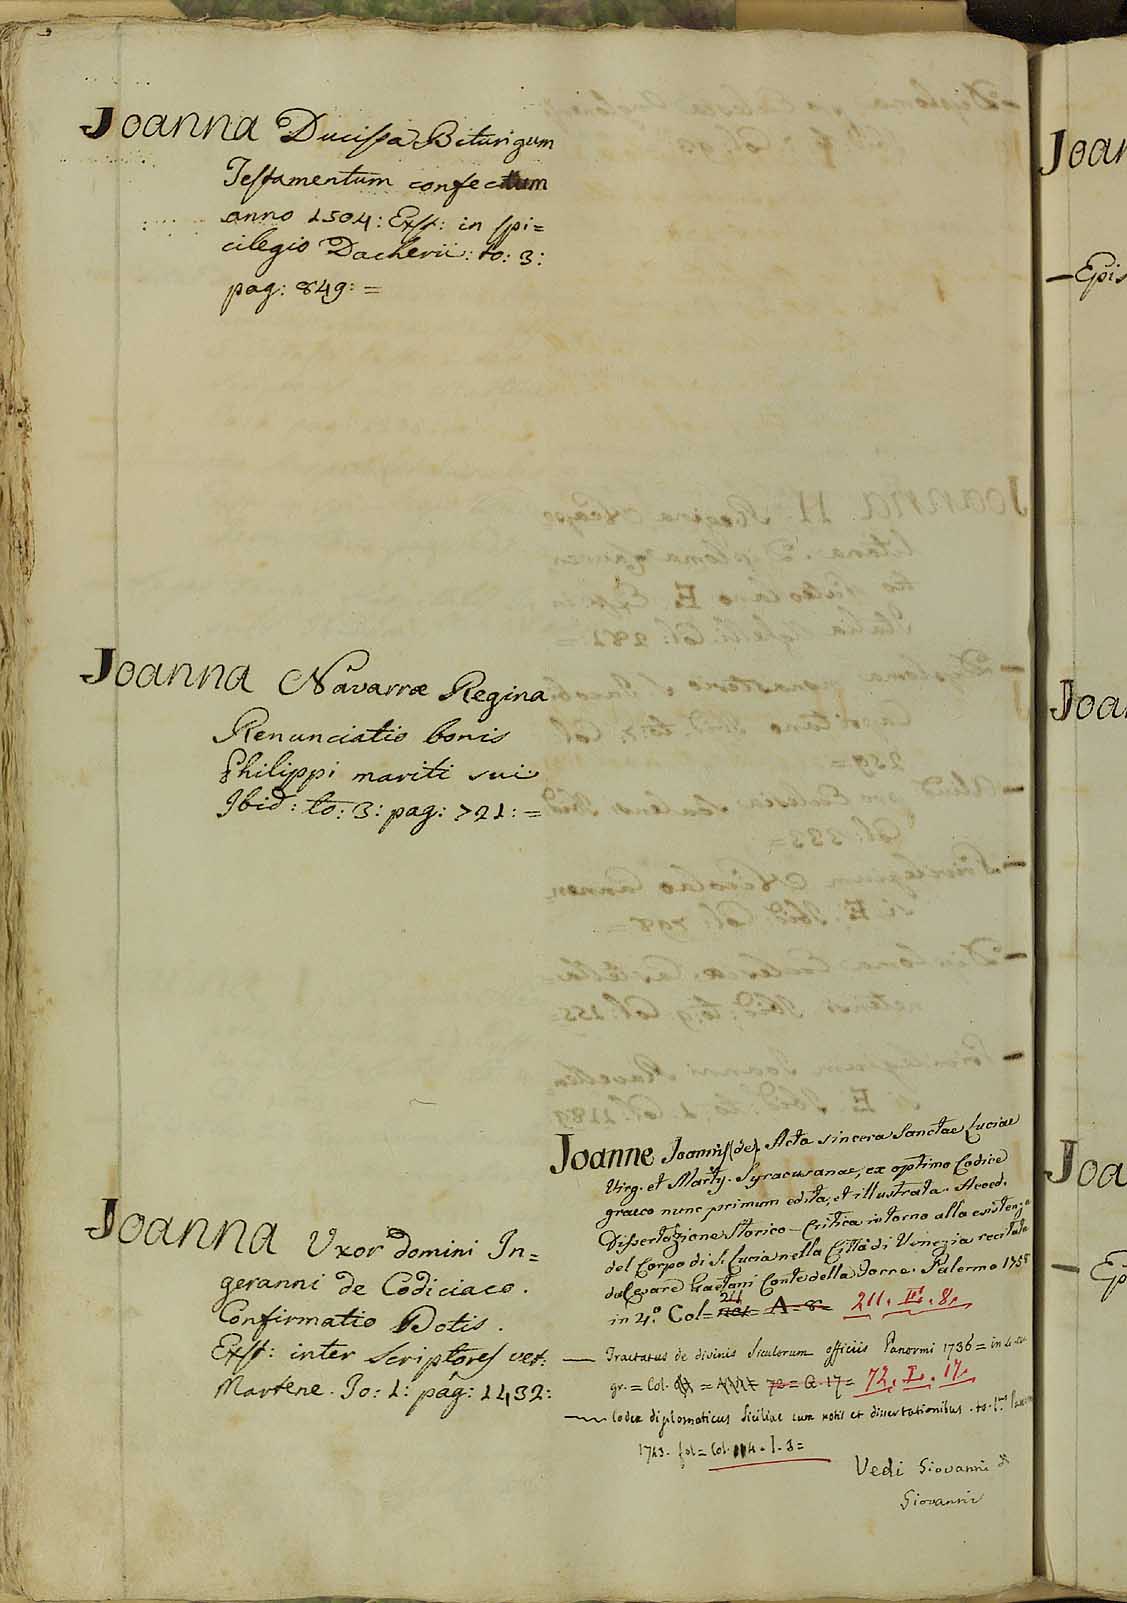 Joanna Ducissa Biturigum
Testamentum confectum
anno 1504: Exst: in spi=
cilegio Dacherii: to: 3:
pag: 849: =
Joanna Navarræ Regina
Renunciatio bonis
Philippi mariti sui
Ibid: to: 3: pag: 721: =
Joanna Uxor domini In=
geranni de Codiciaco.
Confirmatio Dotis.
Exst: inter scriptores vet:
Martene. To: 1: pag: 1432:
Joanne Joannis (de). Acta sincera Sanctae Luciae
Virg. et Marty. Syracusanae, ex optimo Codice
graeco nunc primum edita, et illustrata. Acced.
Dissertazione Storico-Critica intorno alla esistenza
del Corpo di S. Lucia nella Città di Venezia recitata
da Cesare Gaetani Conte della Torre. Palermo 1758
in 4.º Col= 211 A=8= 211. II. 8.
— Tractatus de divinis Siculorum officiis Panormi 1736 = in 4.
gr. = Col. 72 = G. 17 = 72. I. 17.
— Codex diplomaticus Siciliae cum notis et dissertationibus. to. I.
1743. fol = Col. 4. I. 3 =
Vedi Giovanni
Giovanni
Joan
— Epis
Joan
Joa
— Ep